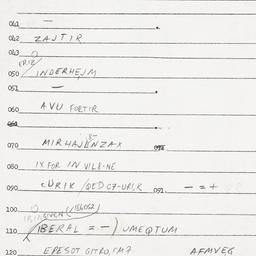 041 —
042 ZAJTIR
043
ERIZ
050 INDERHEJM
051 —
060 AVU FOETIR
061
070 MIRHAJENZAX
080 IX FOR IN VILB-NE
090 CURIK /QED C7-URIK 091. - = +
100
110 IBERAL = - ) UMEQTUM
120 EPESOT GITRO, FM7 AFMVEG